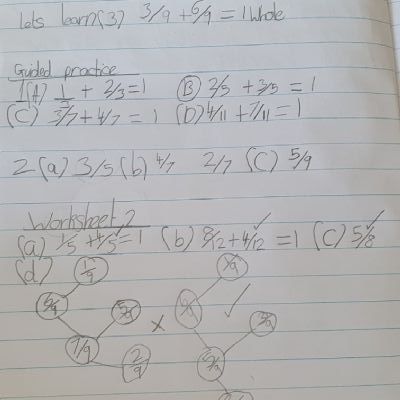 Lets learn (3) 3/9 + 6/9 = 1 Whole
Guided practice
1(A) 1/3 + 2/3 = 1 (B) 2/5 + 3/5 = 1
(C) 3/7 + 4/7 = 1 (D) 4/11 + 7/11 = 1
2 (a) 3/5 (b) 4/7 2/7 (C) 5/9
Worksheet 2
(a) 1/5 + 4/5 = 1 (b) 8/12 + 4/12 = 1 (C) 5/8
(d) 1/9
7/9
2/9